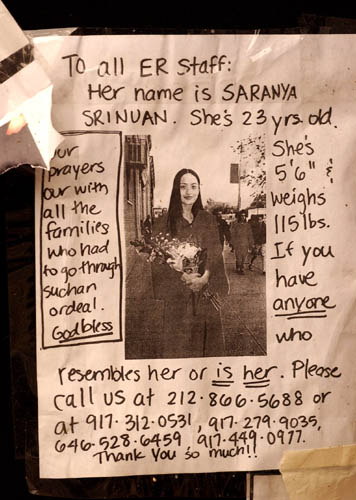 To all ER Staff:
Her name is SARANYA
SRINUAN. She's 23 yrs. old.
She's
5'6" &
weighs
115 lbs.
If you
have
anyone
who
resembles her or is her. Please
call us at 212.866.5688 or
at 917.312.0531, 917.279.9035,
646.528.6459, 917.449.0977.
Thank You so much!!
our
prayers
our with
all the
families
who had
to go through
such an
ordeal.
God bless